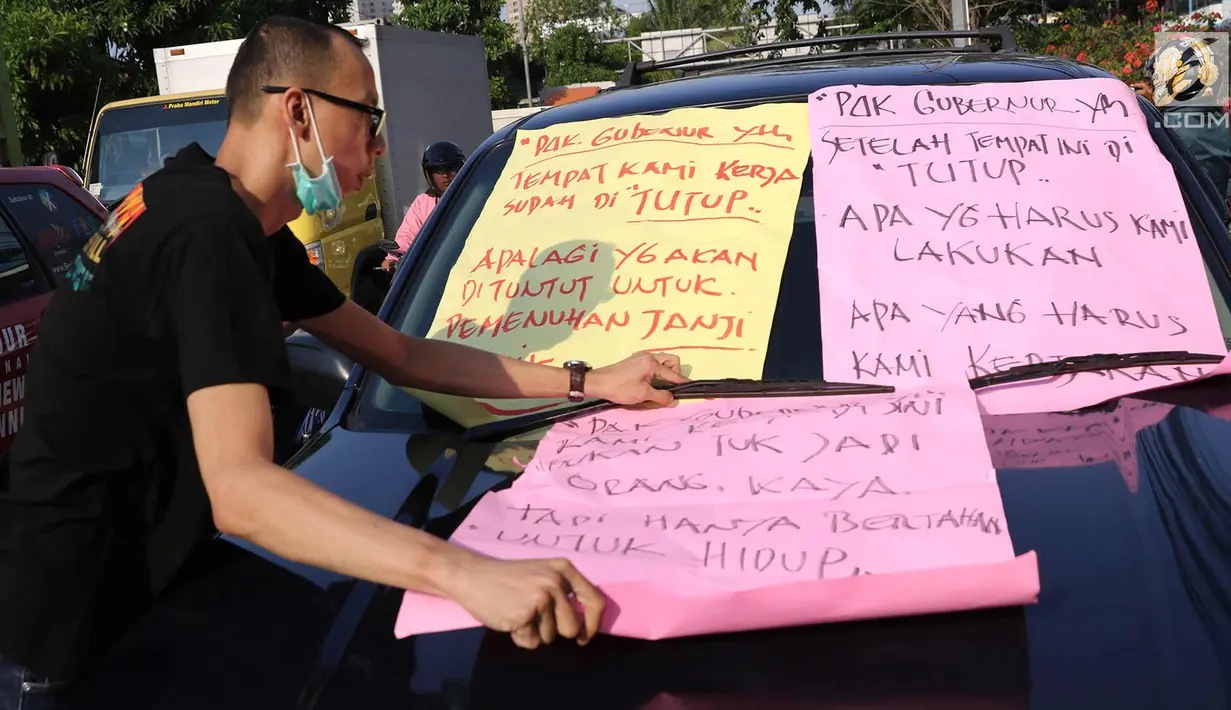 "PAK GUBERNUR YTH
TEMPAT KAMI KERJA
SUDAH DI "TUTUP..
APALAGI YG AKAN
DITUNTUT UNTUK
PEMENUHAN JANJI
"PAK GUBERNUR YTH
SETELAH TEMPAT INI DI
"TUTUP..
APA YG HARUS KAMI
LAKUKAN
APA YANG HARUS
KAMI KERJAKAN
"PAK GUBERNUR SINI
KAMI
BUKAN TUK JADI
ORANG KAYA.
TAPI HANYA BERTAHAN
UNTUK HIDUP..
Prabu Mandiri Motor
.COM